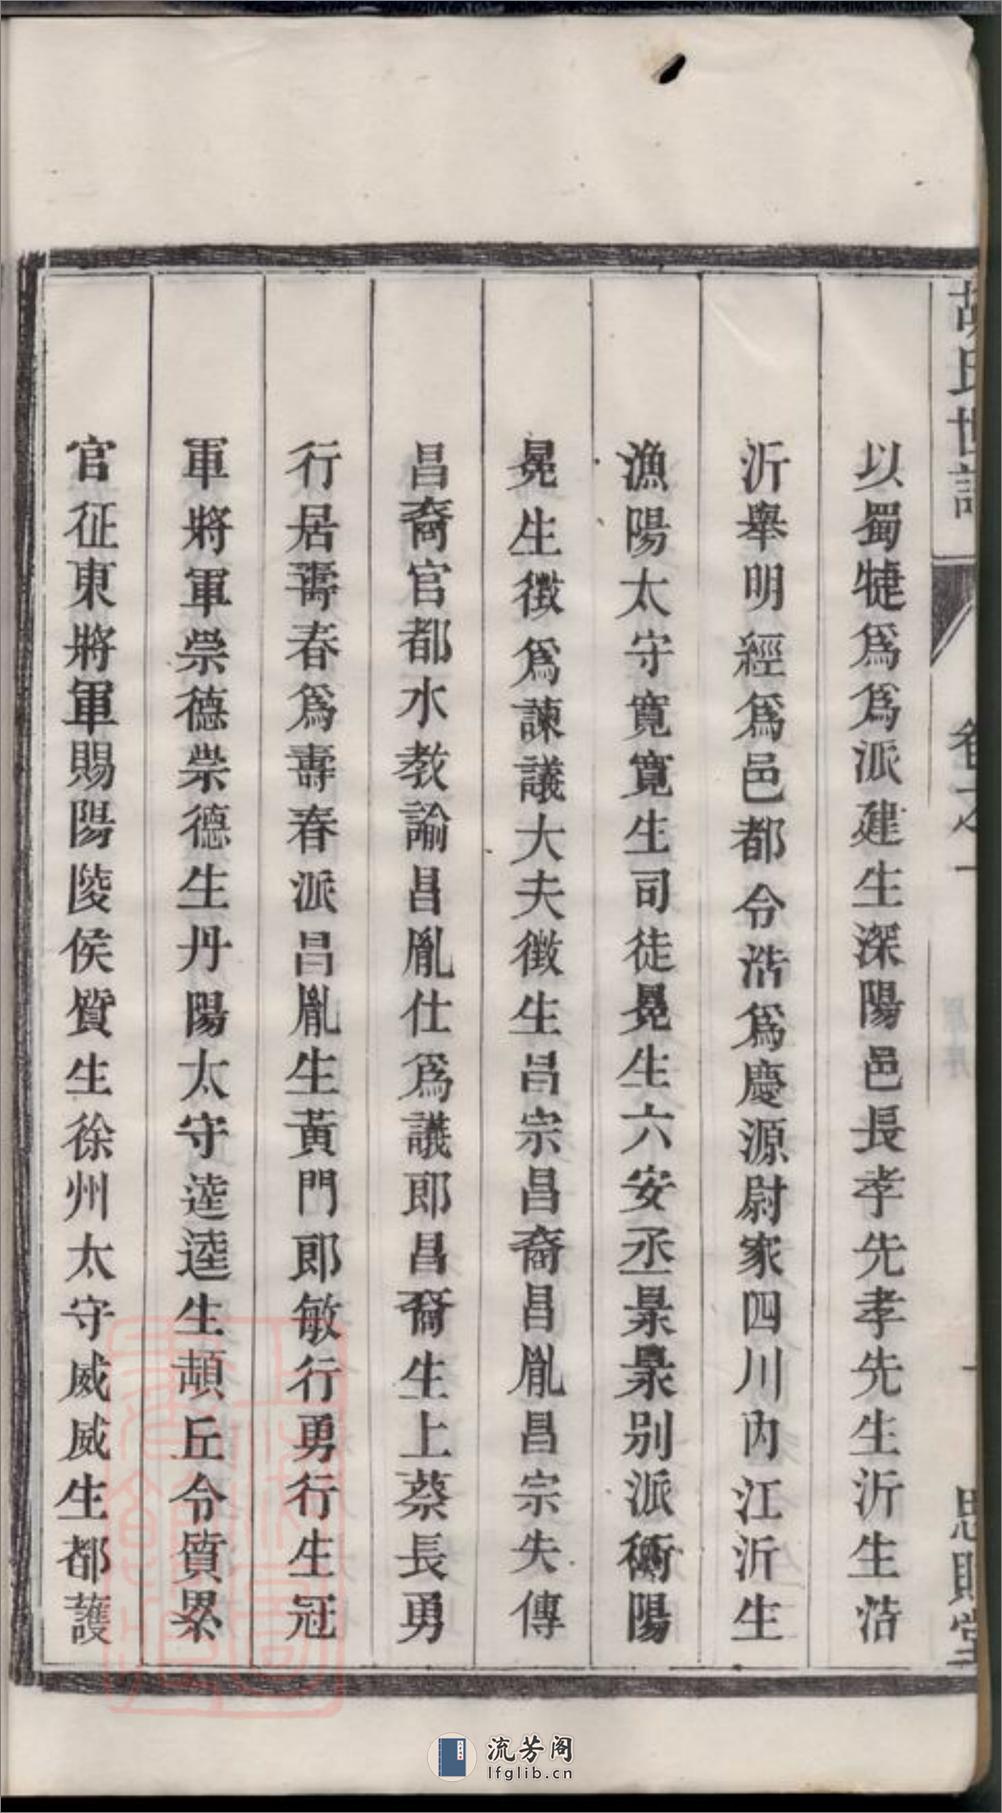 胡氏世譜
卷之一
思貽堂
以蜀犍爲爲派建生深陽邑長孝先孝先生沂生浩
沂舉明經爲邑都令浩爲慶源尉家四川內江沂生
漁陽太守寬寬生司徒晃生六安丞景景别派衡陽
晃生徵爲諫議大夫徵生昌宗昌裔昌胤昌宗失傳
昌裔官都水教諭昌胤仕爲議郎昌裔生上蔡長勇
行居壽春爲壽春派昌胤生黃門郎敏行勇行生冠
軍將軍崇德崇德生丹陽太守逵逵生頓丘令質累
官征東將軍賜陽陵侯質生徐州太守威威生都護
流芳阁
lfglib.cn